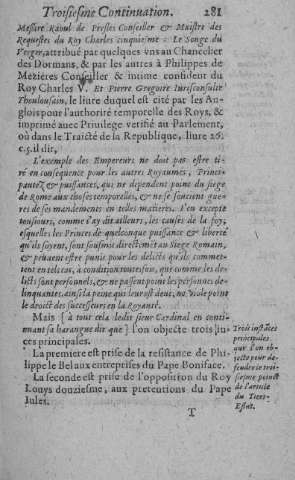 Troisiesme Continuation. 281
Messire Raoul de Presles Conseiller & Maistre des
Requestes du Roy Charles cinquiéme : Le Songe du
Verger, attribué par quelques vns au Chancelier
des Dormans, & par les autres à Philippes de
Mezieres Conseiller & intime confident du
Roy Charles V. Et Pierre Gregoire Iurisconsulte
Thoulousain, le liure duquel est cité par les An-
glois pour l'authorité temporelle des Roys, &
imprimé auec Priuilege verifié au Parlement,
où dans le Traicté de la Republique, liure 26.
c. 5. il dit,
L'exemple des Empereurs ne doit pas estre ti-
ré en consequence pour les autres Royaumes, Princi-
pautez & puissances, qui ne dependent point du siege
de Rome aux choses temporelles, & ne se soucient gue-
res de ses mandemens en telles matieres. J'en excepte
tousiours, comme i'ay dit ailleurs, les causes de la foy,
esquelles les Princes de quelconque puissance & liberté
qu'ils soyent, sont sousmis directemẽt au Siege Romain,
& peuuent estre punis pour les delicts qu'ils commet-
tent en tel cas, à condition toutesfois, que comme les de-
licts sont personnels, & ne passent point les personnes de-
linquantes, ainsi la peine qui leur est deuë, ne viole point
le droict des successeurs en la Royauté.
Mais [ à tout cela ledit sieur Cardinal en conti-
nuant sa harangue dit que ] l'on objecte trois In-
ces principales.
La premiere est prise de la resistance de Phi-
lippe le Bel aux entreprises du Pape Boniface.
La seconde est prise de l'opposition du Roy
Louys douziesme, aux pretentions du Pape
Jules.
Trois instãces
principales
que l'on ob-
jecte pour de-
fendre le troi-
siesme poinct
de l'article
du Tiers-
Estat.
T